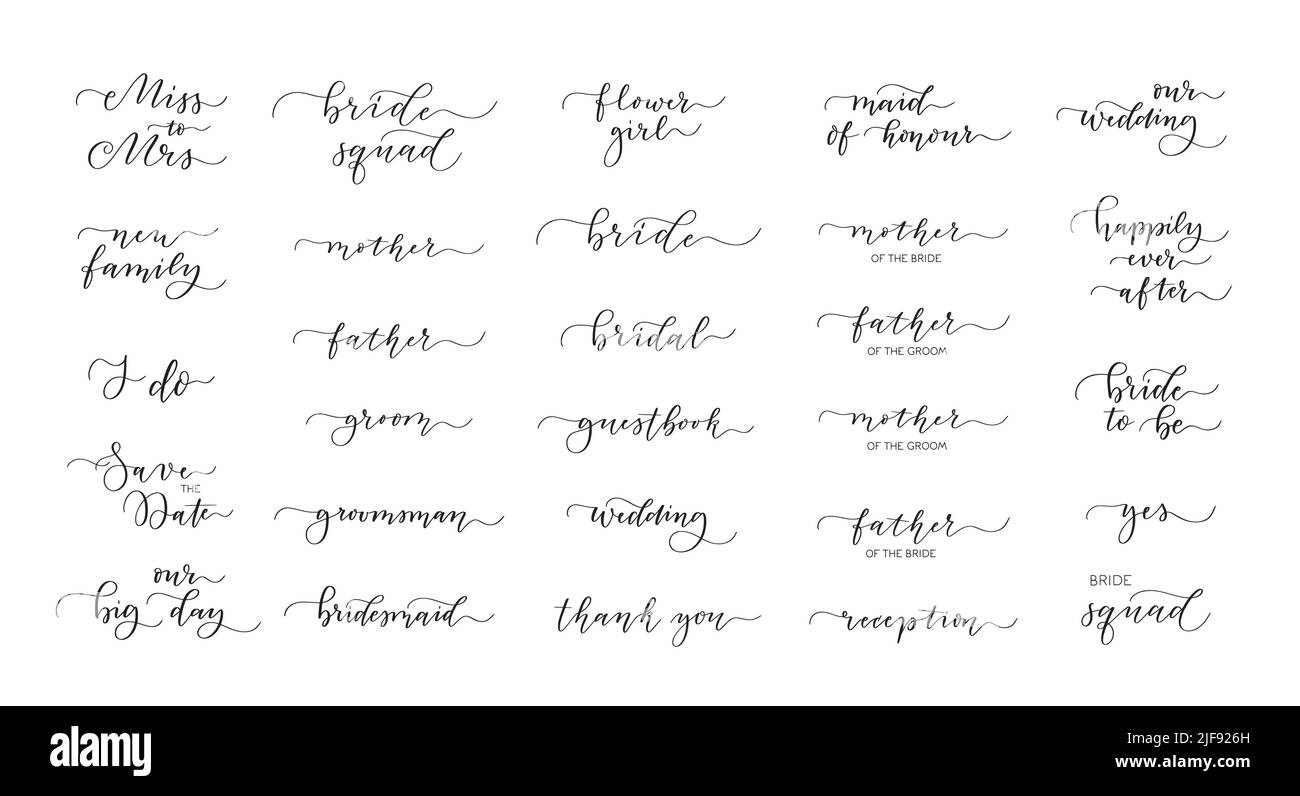 Miss
to
Mrs
new
family
I do
Save
THE
Date
our
big day
bride
squad
mother
father
groom
groomsman
bridesmaid
flower
girl
bride
bridal
guestbook
wedding
thank you
maid
of honour
mother
OF THE BRIDE
father
OF THE GROOM
mother
OF THE GROOM
father
OF THE BRIDE
reception
our
wedding
happily
ever
after
bride
to be
yes
BRIDE
squad
alamy
alamy
Image ID: 2JF926H
www.alamy.com